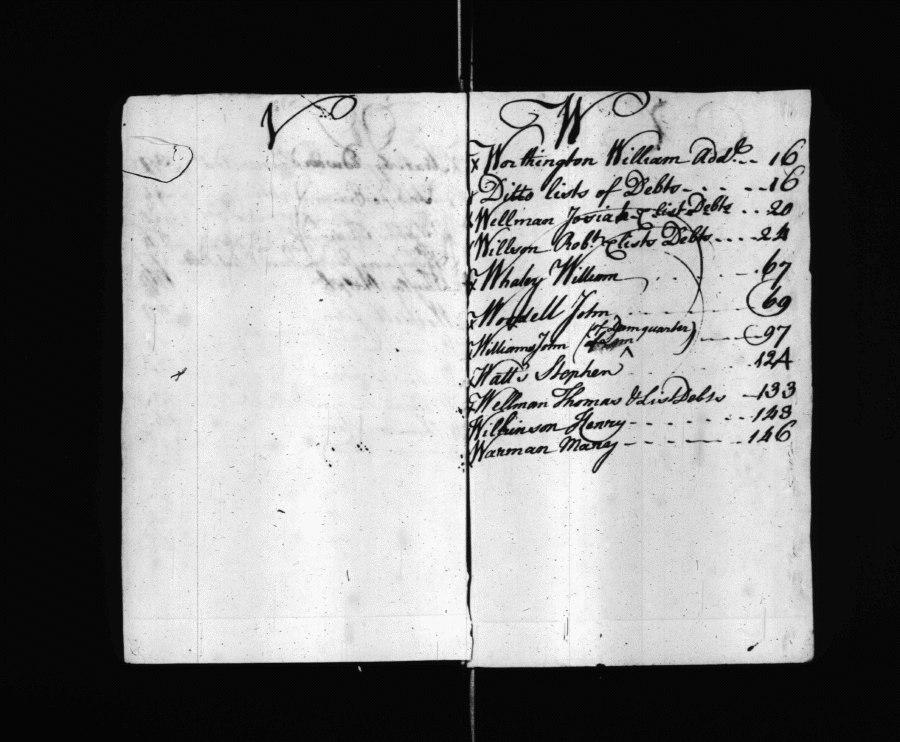 V
W
x Worthington William Add.l -- 16
x Ditto lists of Debts - - - - 16
x Wellman Josiah & List Debts -- 20
x Willson Robt & Lists Debts --- 24
x Whaley William - - - 67
x Woodell John - - - 69
x Williams John (of Jamquarter) --- 97
x Watt's Stephen - - - 124
x Wellman Thomas & List Debts - 133
Wilkinson Henry - - - - - - 143
Warman Mary - - - - - - 146